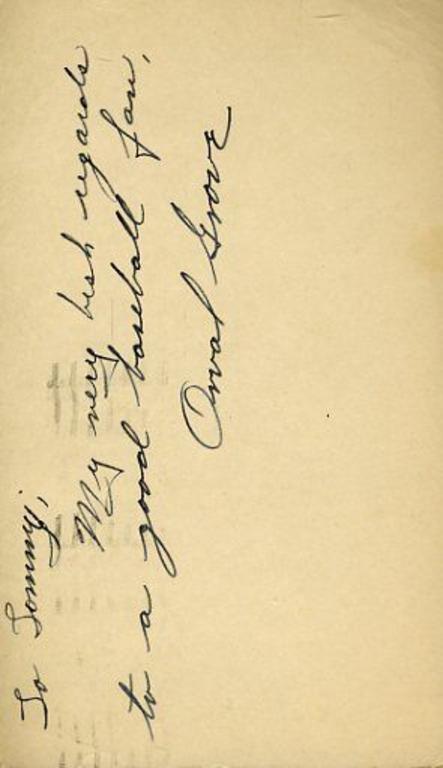 To Tommy,
My very best regards
to a good baseball fan,
Orval Grove